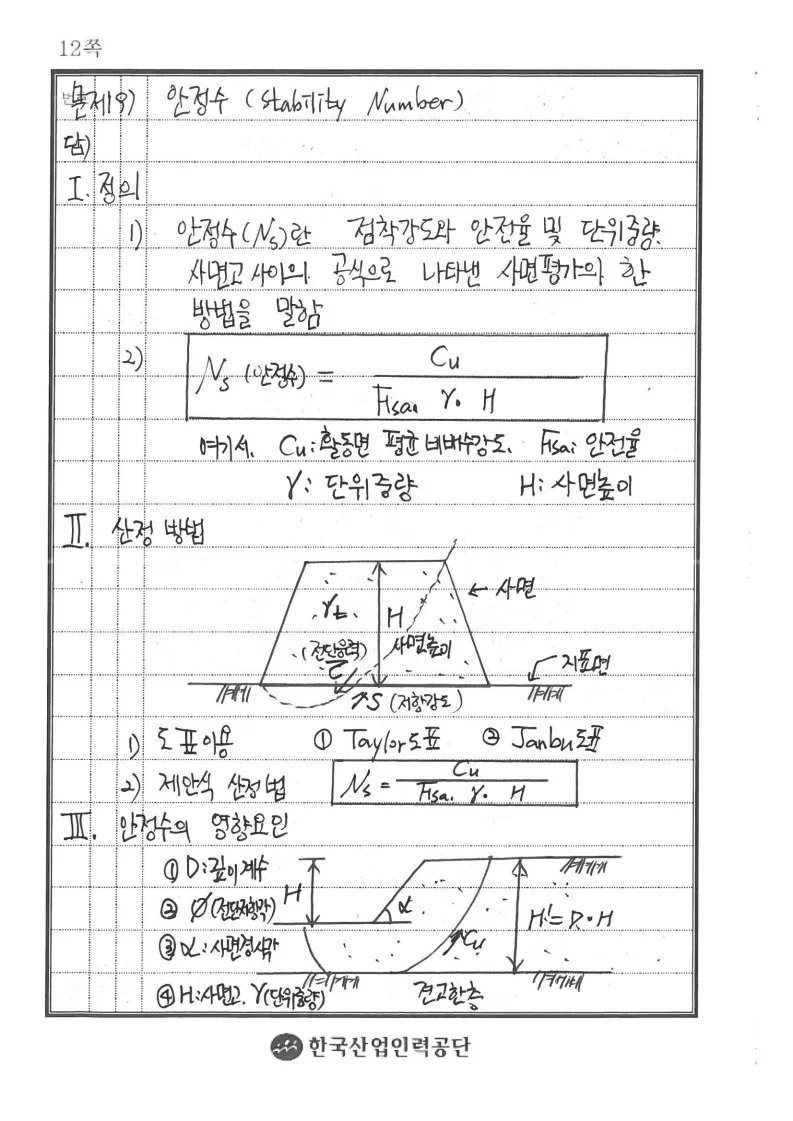 12쪽
문제19) 안정수 (Stability Number)
답)
I. 정의
1) 안정수(Ns)란 점착강도와 안전율 및 단위중량.
사면고 사이의 공식으로 나타낸 사면평가의 한
방법을 말함
2) Ns (안정수) = Cu / Fsa. γ. H
여기서, Cu: 활동면 평균 비배수강도. Fsa: 안전율
γ: 단위중량 H: 사면높이
II. 산정 방법
← 사면
γt. H
(전단응력) 사면높이
τ 지표면
S (저항강도)
1) 도표이용 ① Taylor도표 ② Janbu도표
2) 제안식 산정법 Ns = Cu / Fsa. γ. H
III. 안정수의 영향요인
① D: 깊이계수
② Ø(전단저항각) H α H' = D·H
③ α: 사면경사각 Cu
④ H: 사면고. γ(단위중량) 견고한층
한국산업인력공단